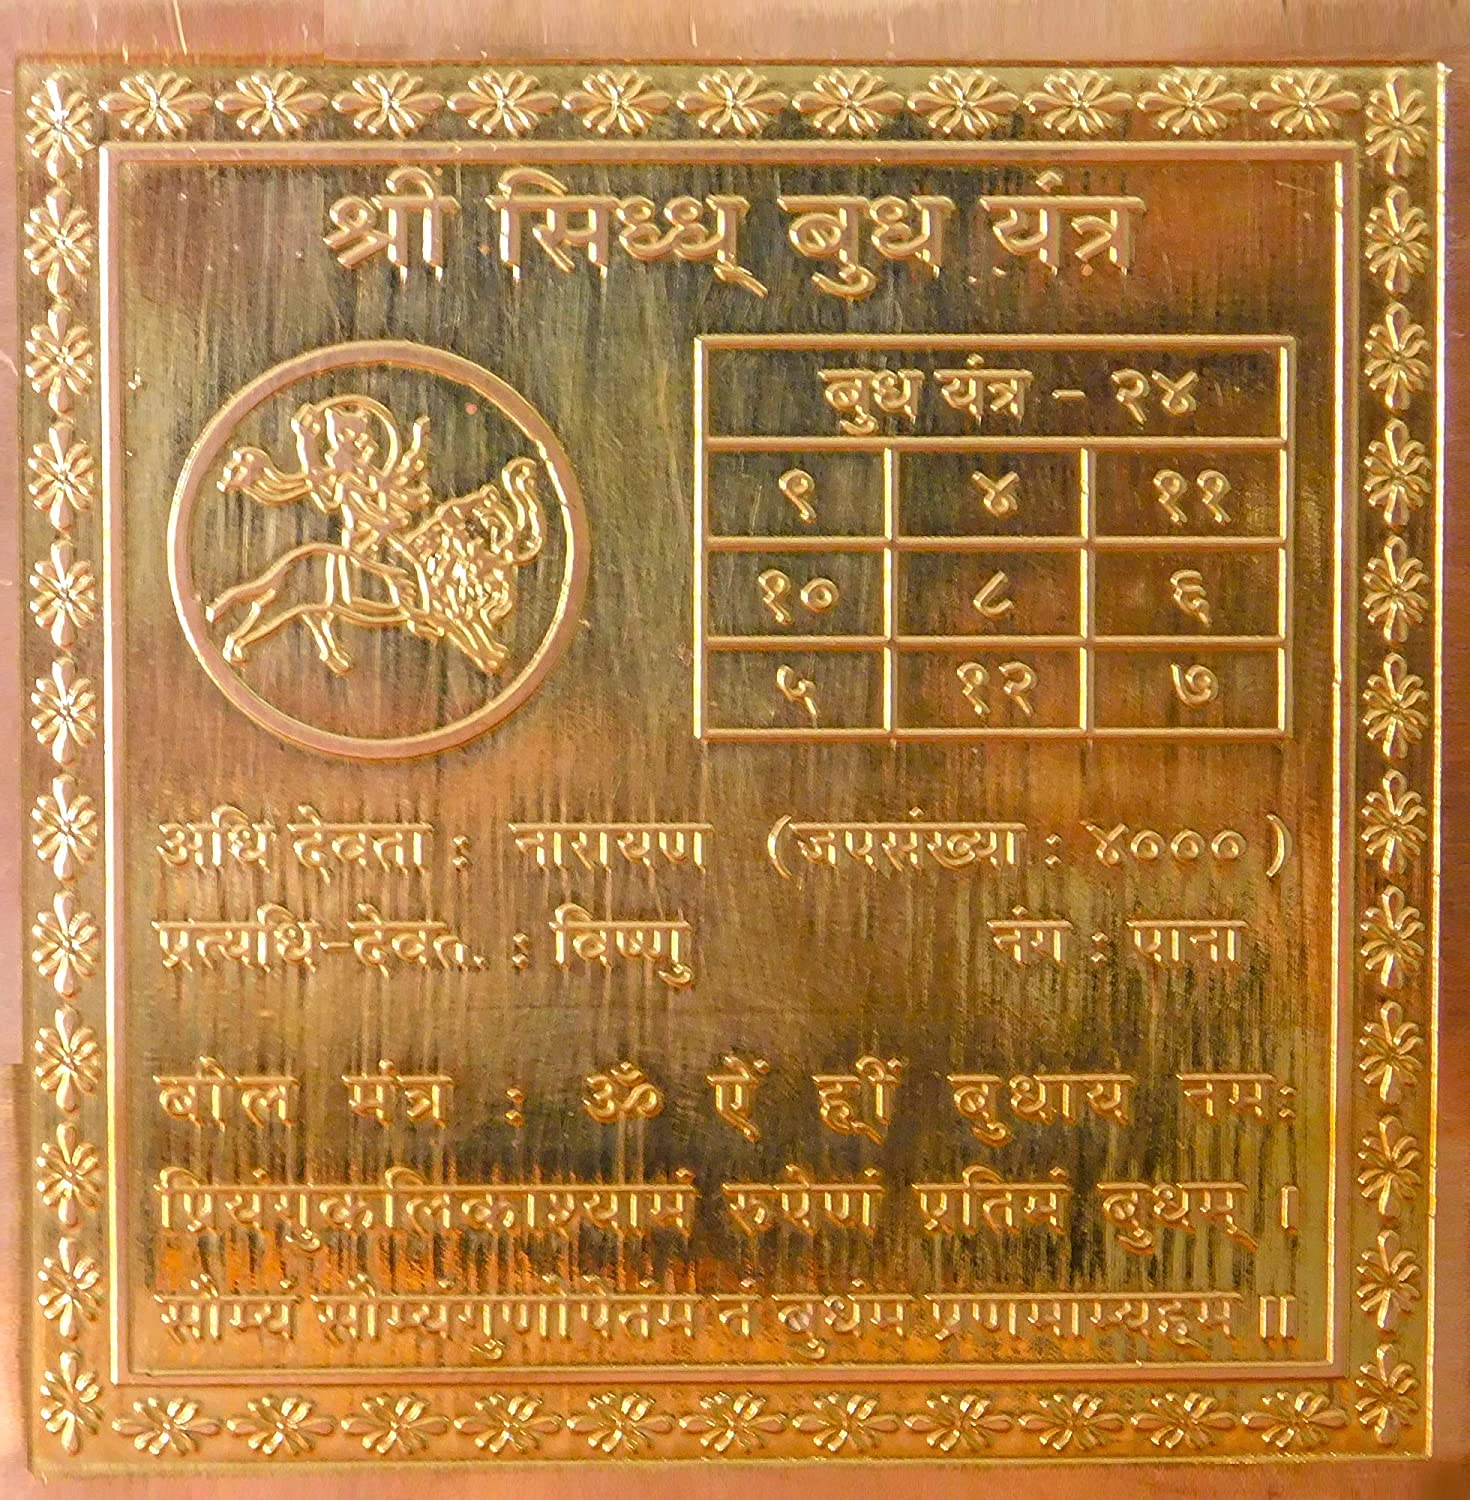 श्री सिध्ध् बुध यंत्र
बुध यंत्र - २४
९ ४ ११
१० ८ ६
५ १२ ७
अधि देवता : नारायण (जपसंख्या : ४०००)
प्रत्यधि-देवत. : विष्णु नंग : पाना
बोल मंत्र : ॐ ऐं ह्रीं बुधाय नमः
प्रियंगुकलिकाश्यामं रुपेणं प्रतिमं बुधम् ।
सोम्यं सोम्यंगुणोपेतंम तं बुधंम प्रणमाम्यहम ॥